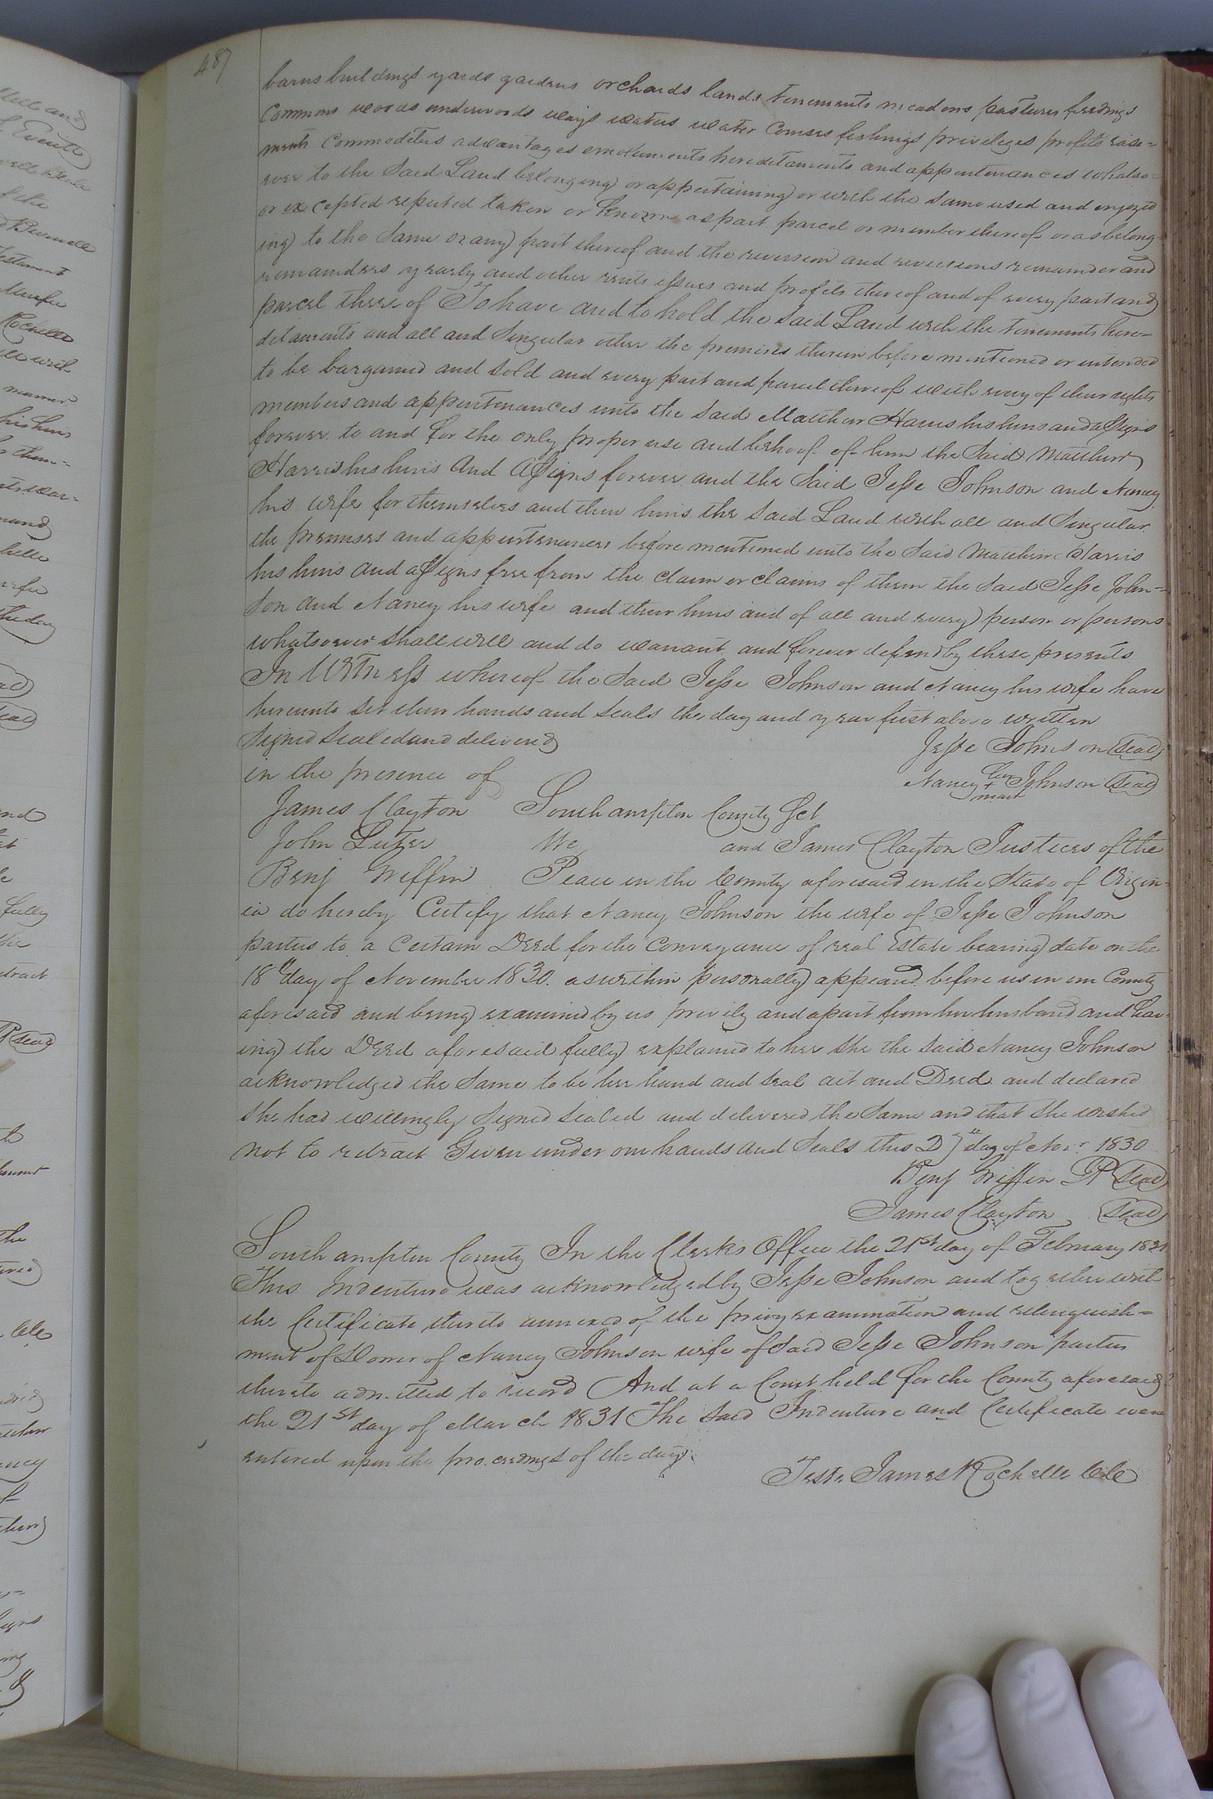 487
barns buildings yards gardens orchards lands tenements meadows pastures feedings
Commons woods underwoods ways waters water Courses fishings priveleges profits ease=
ments Commodities advantages emoluments hereditaments and appurtenances whatso=
ever to the Said Land belonging or appertaining or with the Same used and enjoyed
or excepted reputed taken or known as part parcel or member thereof or as belong
ing to the Same or any part thereof and the reversion and reversions remainder and
remainders yearly and other rents issues and profits thereof and of every part and
parcel thereof To have and to hold the Said Land with the tenements here=
ditaments and all and Singular other the premises therein before mentioned or intended
to be bargained and Sold and every part and parcel thereof with every of their rights
members and appurtenances unto the Said Matthew Harris his heirs and assigns
forever to and for the only proper use and behoof of him the Said Matthew
Harris his heirs And Assigns forever and the Said Jesse Johnson and Nancy
his wife for themselves and their heirs the Said Land with all and Singular
the premises and appurtenances before mentioned unto the Said Matthew Harris
his heirs and assigns free from the claim or claims of them the Said Jesse John=
son and Nancy his wife and their heirs and of all and every person or persons
whatsoever Shall will and do warant and forever defend by these presents
In Witness whereof the Said Jesse Johnson and Nancy his wife have
hereunto Set their hands and Seals the day and year first above written
Signed Sealed and delivered
Jesse Johnson (Seal)
in the presence of
Nancy her + mark Johnson (Seal)
James Clayton Southampton County Sct
John Luter We and James Clayton Justices of the
Benj Griffin Peace in the County aforesaid in the State of Virgin
ia do hereby Certify that Nancy Johnson the wife of Jesse Johnson
parties to a Certain Deed for the Conveyance of real Estate bearing date on the
18th day of November 1830. as within personally appeared before us in our County
aforesaid and being examined by us privily and apart from her husband and hav
ing the Deed aforesaid fully explained to her She the Said Nancy Johnson
acknowledged the Same to be her hand and Seal act and Deed and declared
She had willingly Signed Sealed and delivered the Same and that She wished
not to retract Given under our hands and Seals this 27th day of Novr 1830
Benj Griffin JP (Seal)
James Clayton (Seal)
Southampton County In the Clerks Office the 21st day of February 1831
This Indenture was acknowledged by Jesse Johnson and together with
the Certificate thereto annexed of the privy examination and relinquish=
ment of Dower of Nancy Johnson wife of Said Jesse Johnson parties
thereto admitted to record And at a Court held for the County aforesaid
the 21st day of March 1831 The Said Indenture and Certificate were
entered upon the proceedings of the day.
Teste James Rochelle Clc